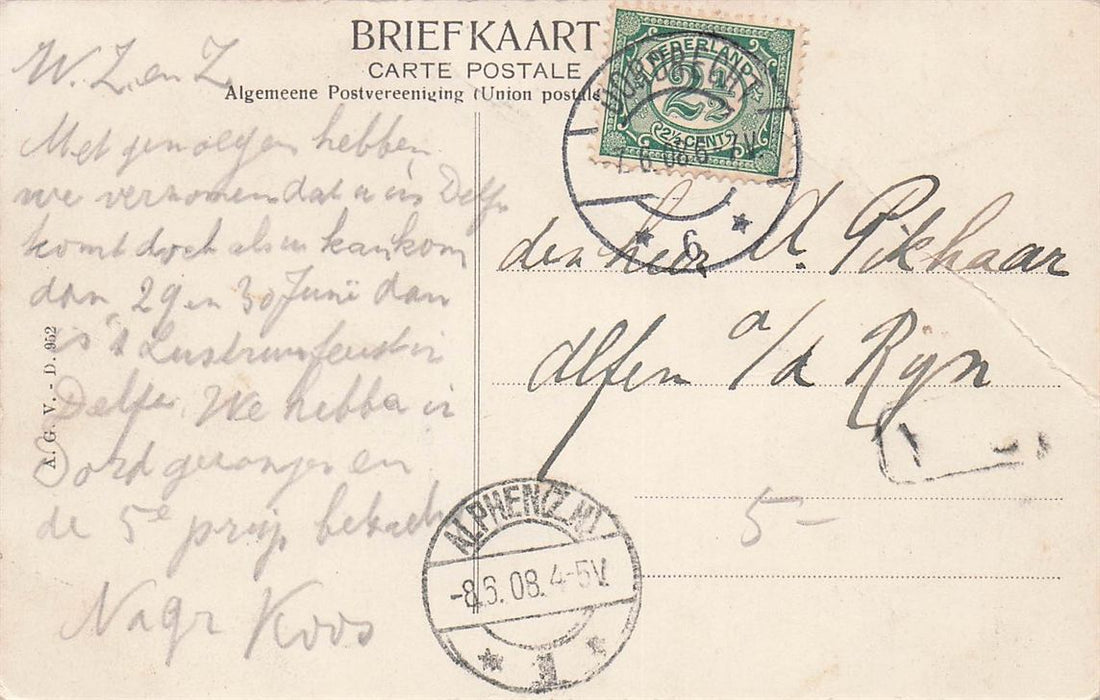 BRIEFKAART
CARTE POSTALE
Algemeene Postvereeniging (Union postale
W. Z. en Z.
Met genoegen hebben
we vernomen dat u in Delft
komt doch als u kan kom
dan 29 en 30 Juni dan
is 't Lustrumfeest in
Delft. We hebben in
Dord gezongen en
de 5e prijs behaald
Koos
A. G. V. - D. 952
NEDERLAND
2½
2½ CENT
DORDRECHT
7.6.08.6- 7V
6
den heer A. Pikhaar
Alfen a/d Rijn
5-
ALPHEN (Z.H.)
-8.6.08.4-5V.
1